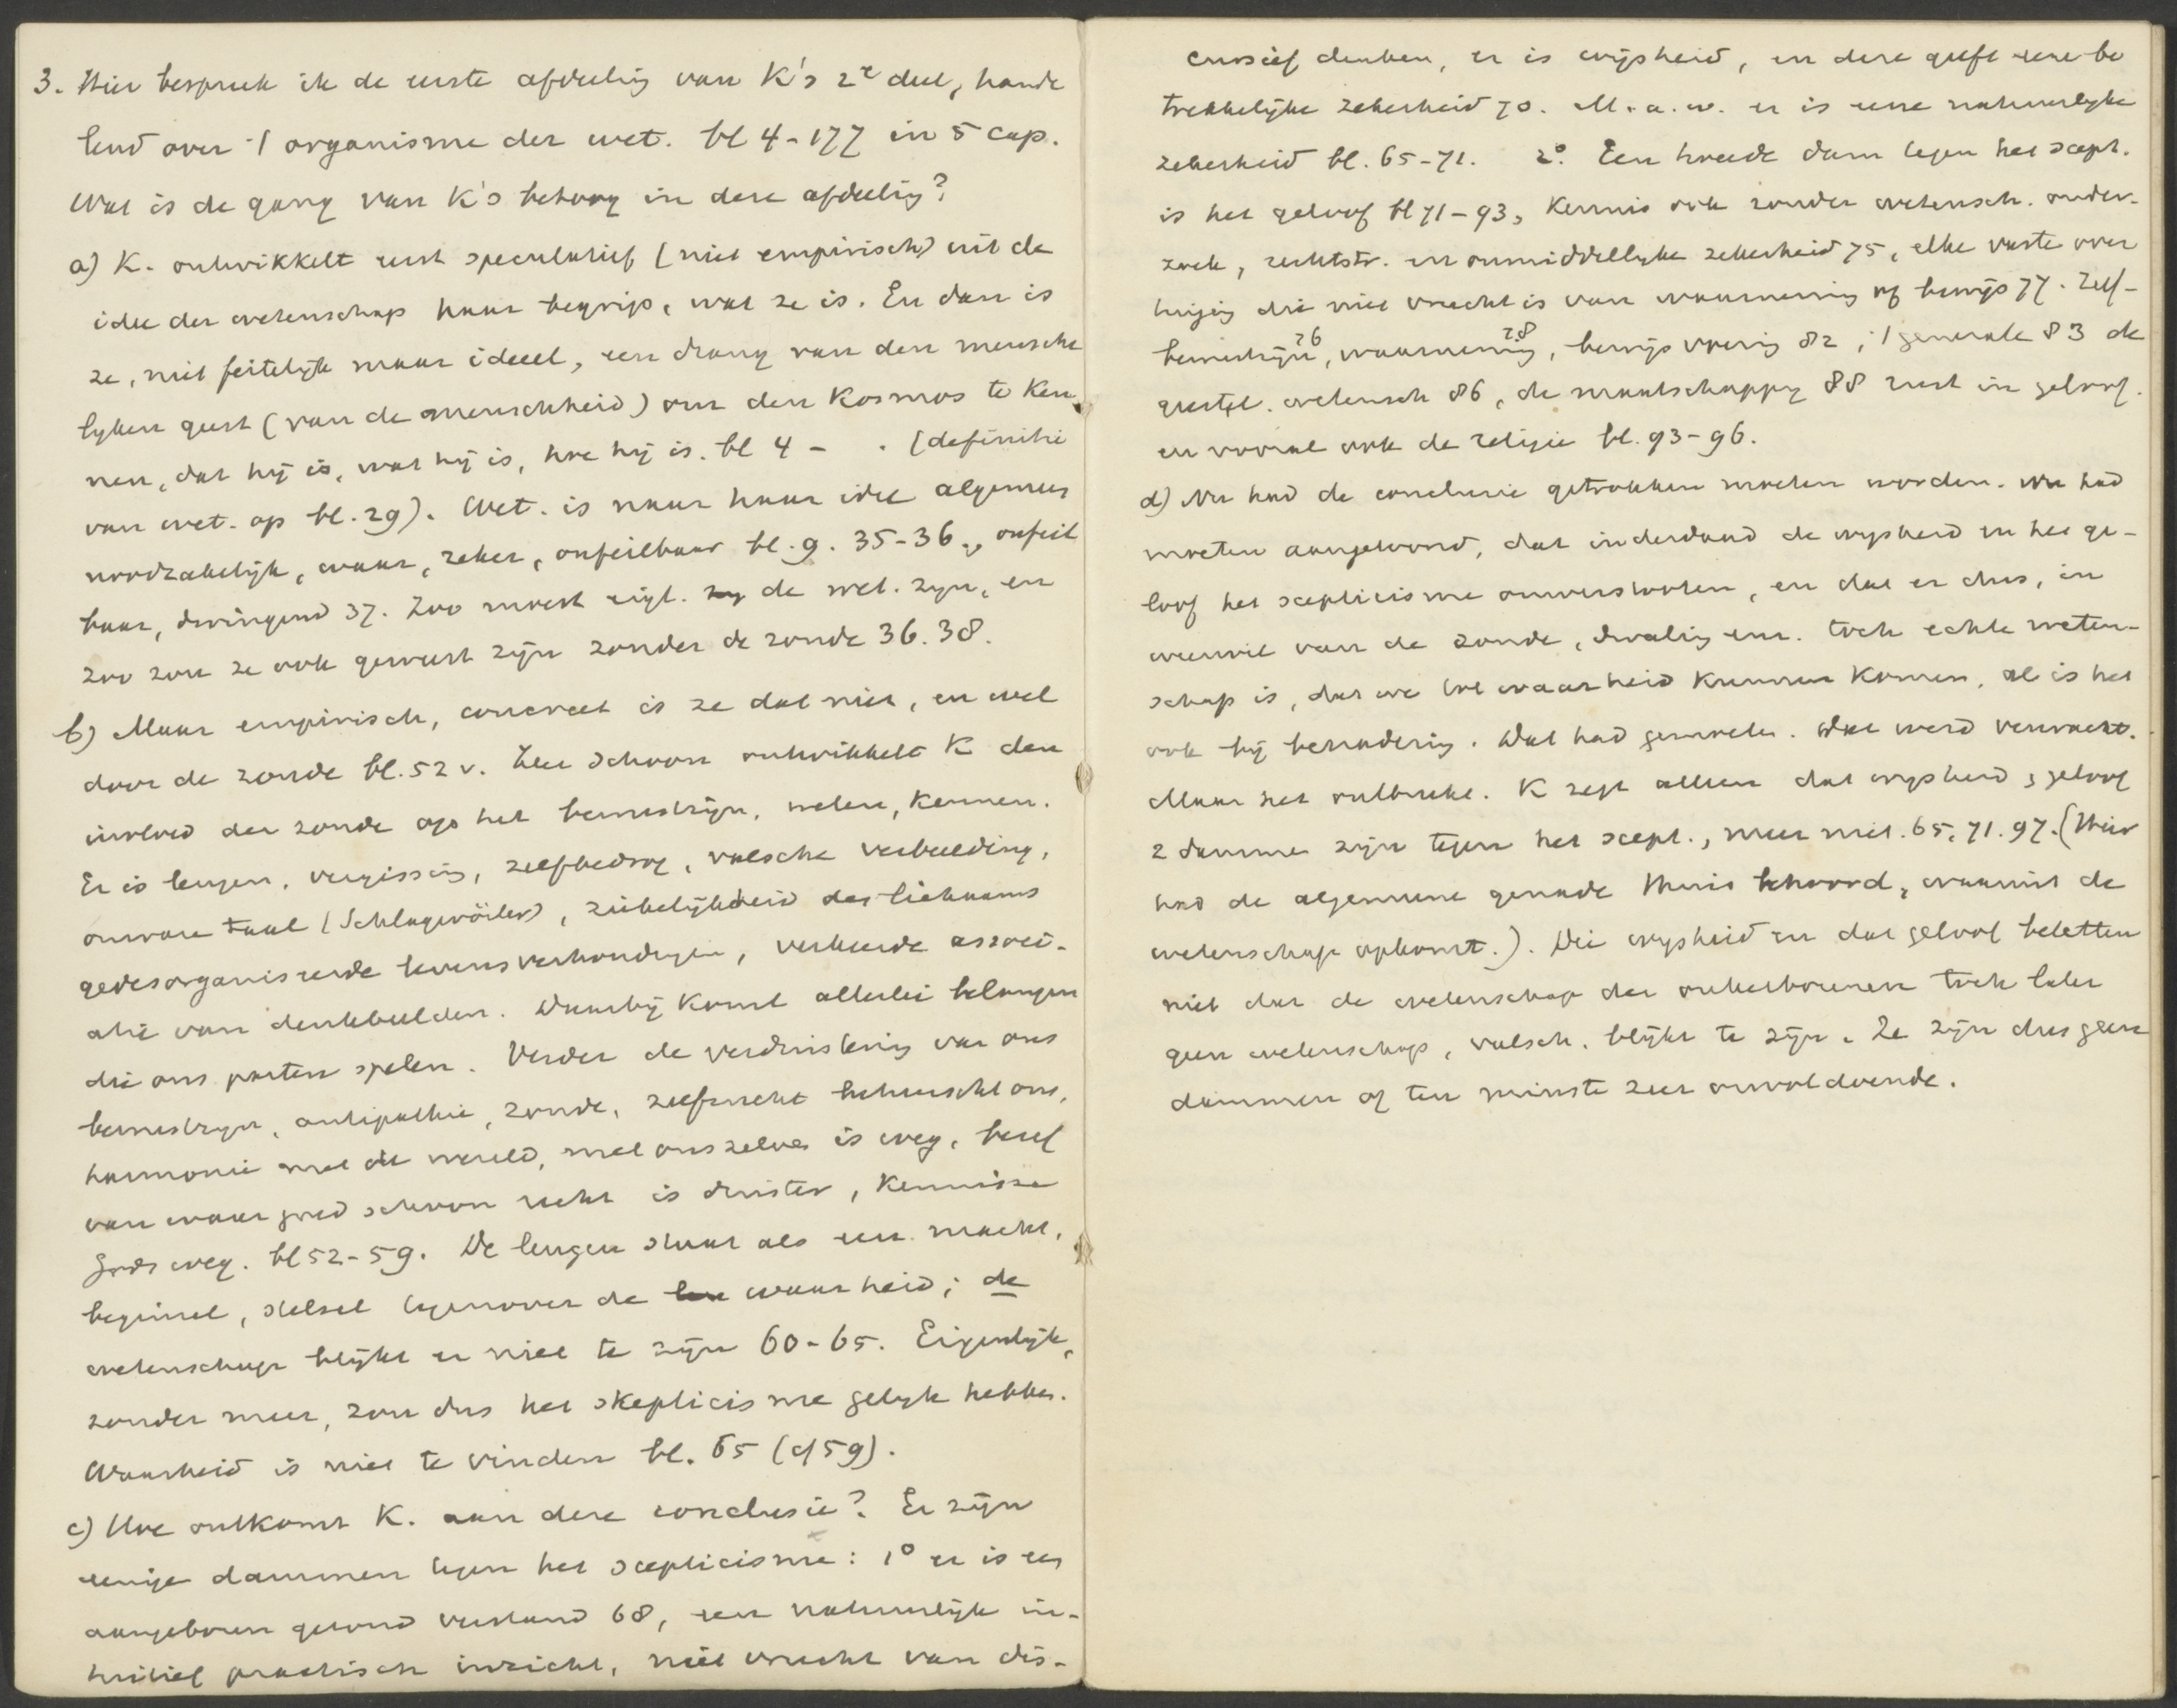 3. Hier bespreek ik de eerste afdeeling van K's 2e deel, hande
lend over 't organisme der wet. bl 4-177 in 5 cap.
Wat is de gang van K's betoog in deze afdeeling?
a) K. ontwikkelt eerst speculatief (niet empirisch) uit de
idee der wetenschap haar begrip, wat ze is. En dan is
ze, niet feitelijk maar ideëel, een drang van den mensche
lyken geest (van de menschheid) om den Kosmos te ken
nen, dat hij is, wat hij is, hoe hij is. bl 4 - . (definitie
van wet. op bl. 29). Wet. is naar haar idee algemeen
noodzakelijk, waar, zeker, onfeilbaar bl. 9. 35-36., onfeil
baar, dwingend 37. Zoo moest eigl. de wet. zyn, en
zoo zou ze ook geweest zijn zonder de zonde 36. 38.
b) Maar empirisch, concreet is ze dat niet, en wel
door de zonde bl. 52 v. Zeer schoon ontwikkelt K den
invloed der zonde op het bewustzijn, weten, kennen.
Er is leugen, vergissing, zelfbedrog, valsche verbeelding,
onware taal (Schlagwörter), ziekelijkheid des lichaams
gedesorganiseerde levensverhoudingen, verkeerde associ-
atie van denkbeelden. Daarbij komt allerlei belangen
die ons parten spelen. Verder de verduistering van ons
bewustzyn, antipathie, zonde, zelfzucht beheerscht ons,
harmonie met de wereld, met ons zelve is weg, besef
van waar goed schoon recht is duister, kennisse
Gods weg. bl 52-59. De leugen staat als een macht,
beginsel, stelsel tegenover de waarheid; de
wetenschap blijkt er niet te zijn 60-65. Eigenlijk,
zonder meer, zou dus het skepticisme gelyk hebben.
Waarheid is niet te vinden bl. 65 (cf 59).
c) Hoe ontkomt K. aan deze conclusie? Er zijn
eenige dammen tegen het scepticisme: 1° er is een
aangeboren gezond verstand 68, een natuurlijk in-
tuitief practisch inzicht, niet vrucht van dis-
cursief denken, er is wijsheid, en deze geeft eene be
trekkelijke zekerheid 70. M. a. w. er is eene natuurlyke
zekerheid bl. 65-71. 2° Een tweede dam tegen het scept.
is het geloof bl 71-93, Kennis ook zonder wetensch. onder-
zoek, rechtstr. en onmiddellyke zekerheid 75, elke vaste over
tuiging die niet vrucht is van waarneming of bewijs 77. Zelf-
bewustzijn 76, waarneming 78, bewijsvoering 82, 't generale 83 de
geestel. wetensch 86, de maatschappy 88 rust in geloof.
en vooral ook de religie bl. 93-96.
d) Nu had de conclusie getrokken moeten worden. Nu had
moeten aangetoond, dat inderdaad de wysheid en het ge-
loof het scepticisme omverstooten, en dat er dus, in
weerwil van de zonde, dwaling enz. toch echte weten-
schap is, dat we tot waarheid kunnen komen, al is het
ook bij benadering. Dat had gemoeten. Dat werd verwacht.
Maar het ontbreekt. K zegt alleen dat wysheid & geloof
2 dammen zijn tegen het scept., meer niet. 65, 71. 97. (Hier
had de algemeene genade thuis behoord, waaruit de
wetenschap opkomt.). Die wysheid en dat geloof beletten
niet dat de wetenschap der onherboornen toch later
geen wetenschap, valsch, blijkt te zijn. Ze zijn dus geen
dammen of ten minste zeer onvoldoende.